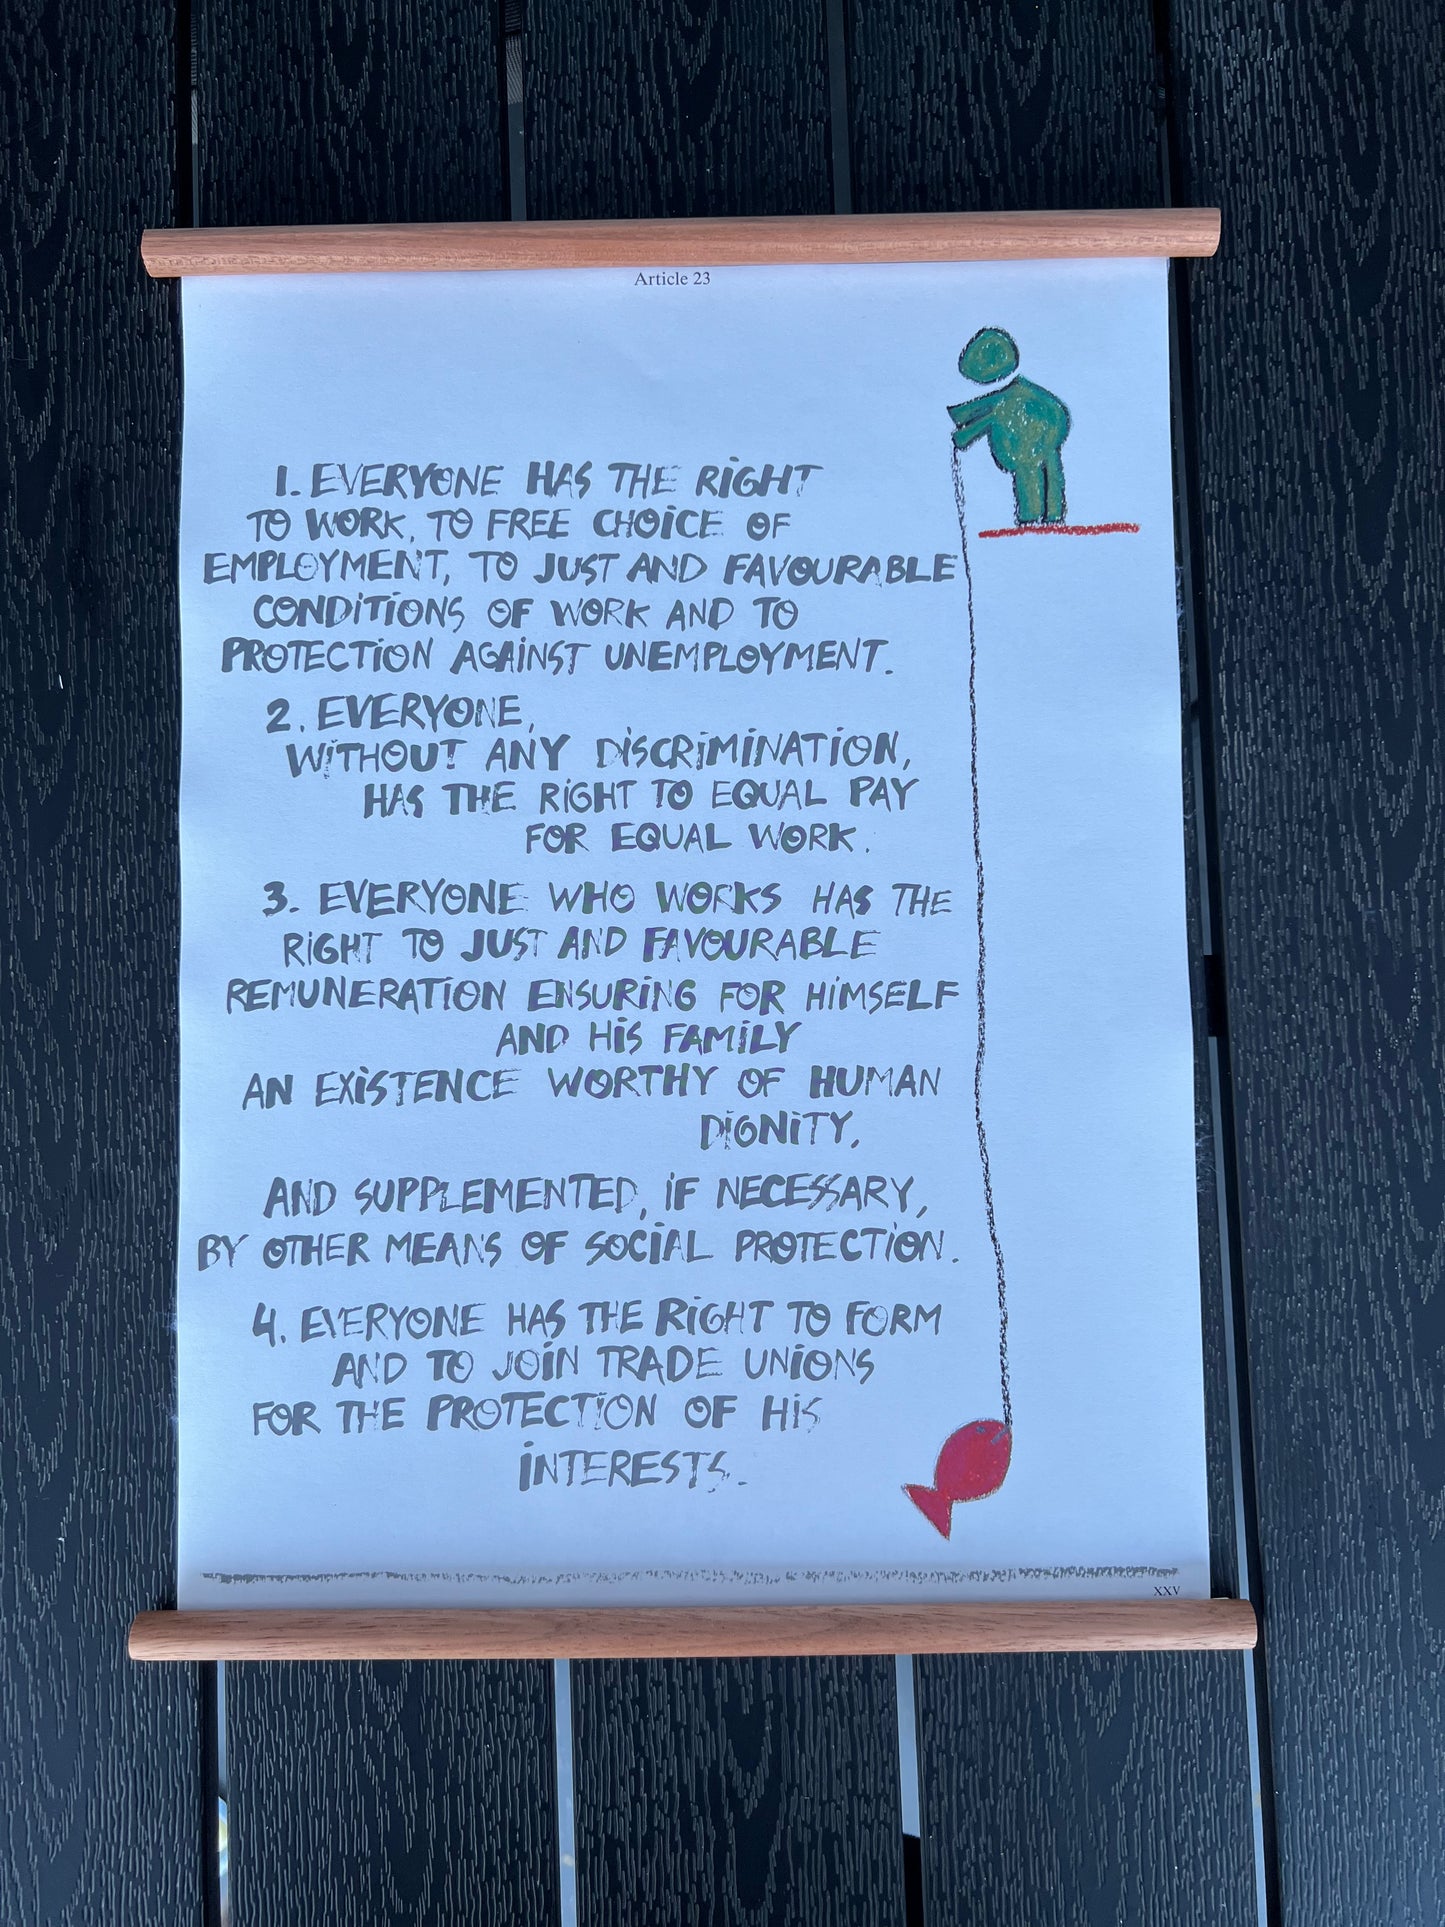 Article 23
1. EVERYONE HAS THE RIGHT
TO WORK, TO FREE CHOICE OF
EMPLOYMENT, TO JUST AND FAVOURABLE
CONDITIONS OF WORK AND TO
PROTECTION AGAINST UNEMPLOYMENT.
2. EVERYONE,
WITHOUT ANY DISCRIMINATION,
HAS THE RIGHT TO EQUAL PAY
FOR EQUAL WORK.
3. EVERYONE WHO WORKS HAS THE
RIGHT TO JUST AND FAVOURABLE
REMUNERATION ENSURING FOR HIMSELF
AND HIS FAMILY
AN EXISTENCE WORTHY OF HUMAN
DIGNITY,
AND SUPPLEMENTED, IF NECESSARY,
BY OTHER MEANS OF SOCIAL PROTECTION.
4. EVERYONE HAS THE RIGHT TO FORM
AND TO JOIN TRADE UNIONS
FOR THE PROTECTION OF HIS
INTERESTS.
XXV